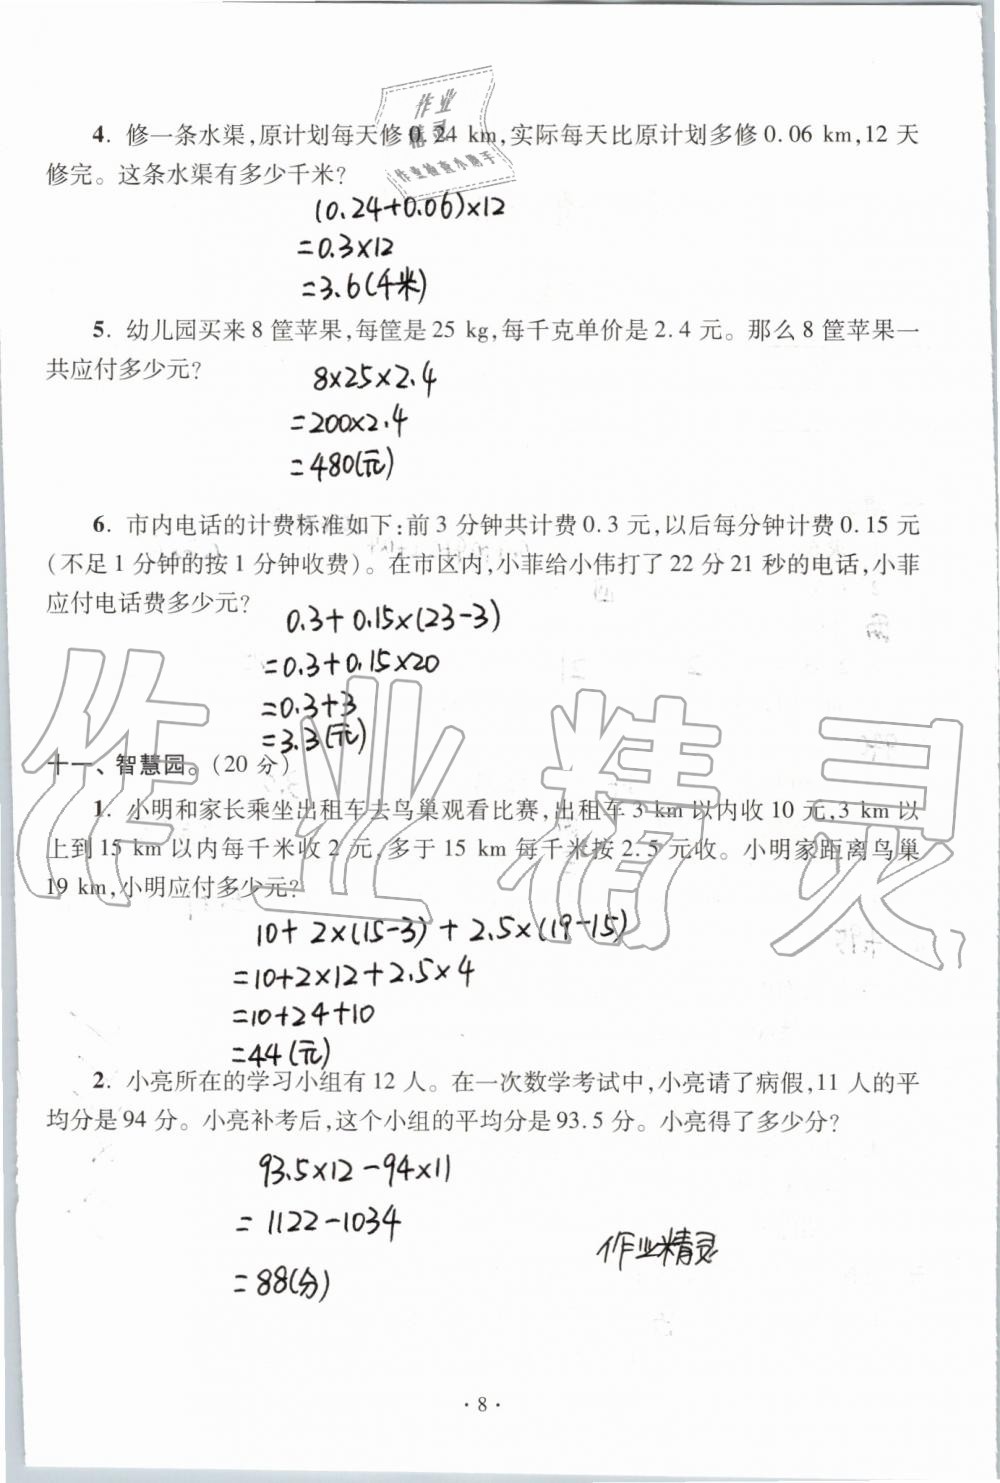 作业
精灵
作业检查小助手
4. 修一条水渠,原计划每天修0.24 km,实际每天比原计划多修0.06 km,12天
修完。这条水渠有多少千米?
(0.24+0.06)×12
=0.3×12
=3.6(千米)
5. 幼儿园买来8筐苹果,每筐是25 kg,每千克单价是2.4元。那么8筐苹果一
共应付多少元?
8×25×2.4
=200×2.4
=480(元)
6. 市内电话的计费标准如下:前3分钟共计费0.3元,以后每分钟计费0.15元
(不足1分钟的按1分钟收费)。在市区内,小菲给小伟打了22分21秒的电话,小菲
应付电话费多少元?
0.3+0.15×(23-3)
=0.3+0.15×20
=0.3+3
=3.3(元)
十一、智慧园。(20分)
1. 小明和家长乘坐出租车去鸟巢观看比赛,出租车3 km以内收10元,3 km以
上到15 km以内每千米收2元,多于15 km每千米按2.5元收。小明家距离鸟巢
19 km,小明应付多少元?
10+2×(15-3)+2.5×(19-15)
=10+2×12+2.5×4
=10+24+10
=44(元)
2. 小亮所在的学习小组有12人。在一次数学考试中,小亮请了病假,11人的平
均分是94分。小亮补考后,这个小组的平均分是93.5分。小亮得了多少分?
93.5×12-94×11
=1122-1034
=88(分)
作业精灵
·8·
作业精灵